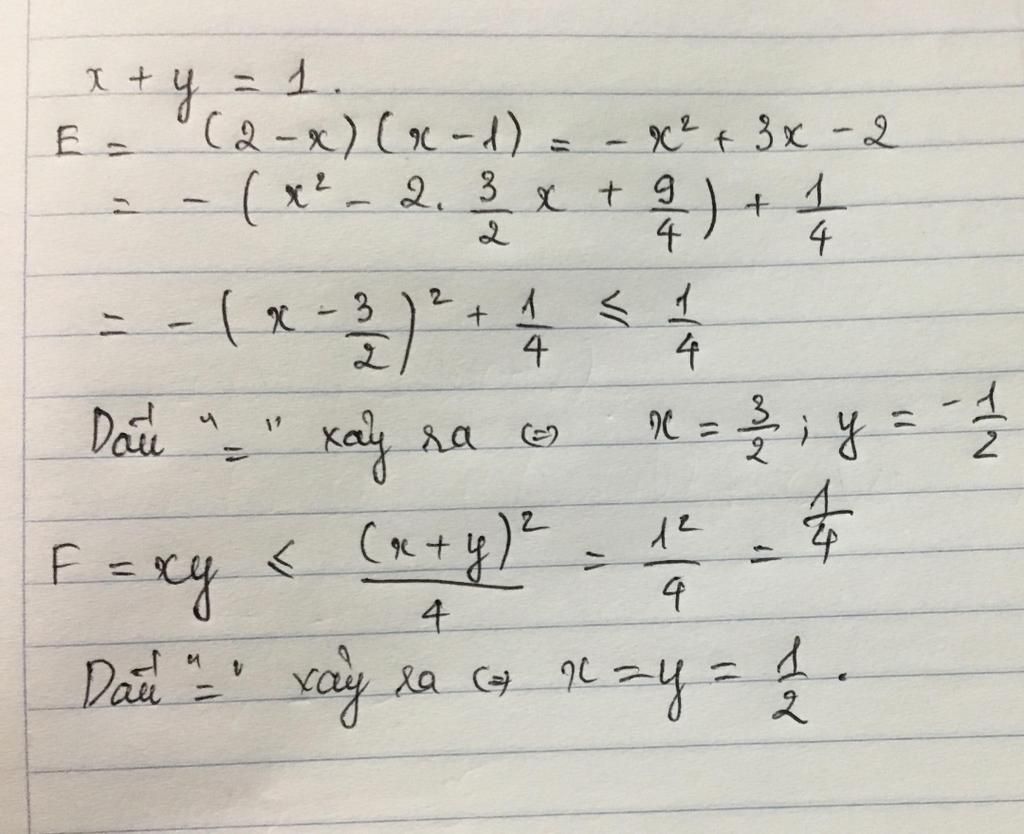 x + y = 1.
E = (2 - x)(x - 1) = - x² + 3x - 2
= - (x² - 2. 3/2 x + 9/4) + 1/4
= - (x - 3/2)² + 1/4 ≤ 1/4
Dấu "=" xảy ra ⇔ x = 3/2 ; y = -1/2
F = xy ≤ (x + y)²/4 = 1²/4 = 1/4
Dấu "=" xảy ra ⇔ x = y = 1/2.